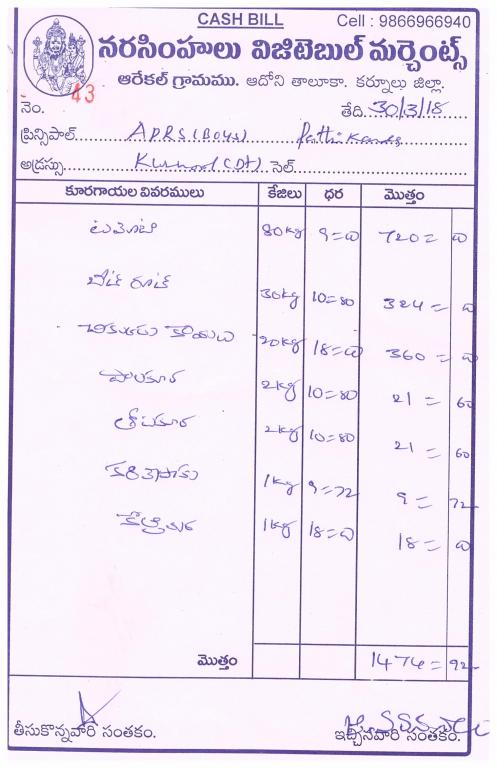 CASH BILL Cell : 9866966940
నరసింహలు విజిటెబుల్ మర్చెంట్స్
ఆరేకల్ గ్రామము. ఆదోని తాలూకా. కర్నూలు జిల్లా.
నెం. 43 తేది. 30/3/18
ప్రిన్సిపాల్ APRS (BOYS) Pathikonda
అడ్రస్సు Kurnool (Dt) సెల్
కూరగాయల వివరములు కేజిలు ధర మొత్తం
టమోటా 80kg 9=00 720=00
బీట్ రూట్ 30kg 10=80 324=00
చిక్కుడు కాయలు 20kg 18=00 360=00
పాలకూర 2kg 10=80 21=60
2kg 10=80 21=60
కరివేపాకు 1kg 9=72 9=72
కొత్తిమీర 1kg 18=00 18=00
మొత్తం 1474=92
తీసుకొన్నవారి సంతకం. ఇచ్చినవారి సంతకం.